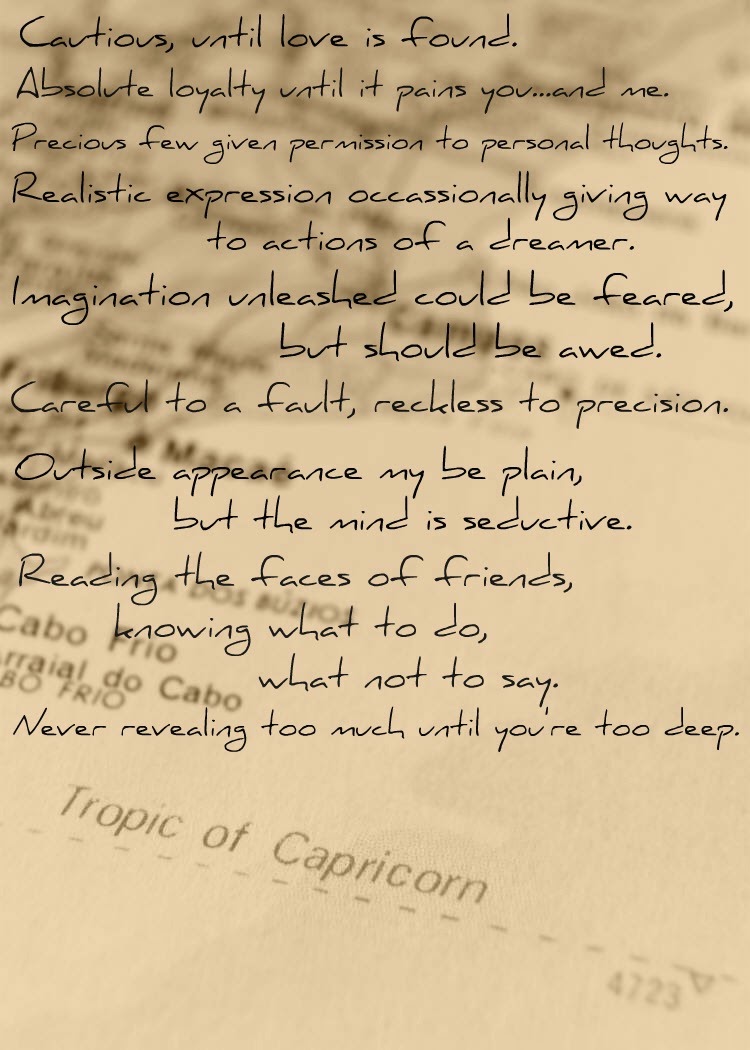 Cautious, until love is found.
Absolute loyalty until it pains you...and me.
Precious few given permission to personal thoughts.
Realistic expression occassionally giving way
to actions of a dreamer.
Imagination unleashed could be feared,
but should be awed.
Careful to a fault, reckless to precision.
Outside appearance my be plain,
but the mind is seductive.
Reading the faces of friends,
knowing what to do,
what not to say.
Never revealing too much until you're too deep.
Macaé
Abreu
Jardim
DOS BÚZIOS
Cabo Frio
Arraial do Cabo
CABO FRIO
Tropic of Capricorn
4723